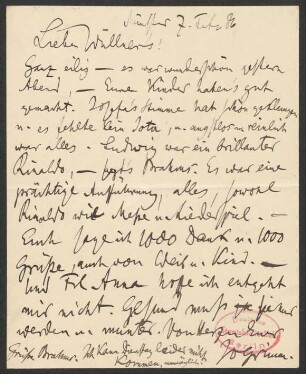 Münster 7. Febr. 96
Liebe Wüllners!
Ganz eilig — es war wunderschön gestern
Abend, — Eure Kinder haben's gut
gemacht. Josefa's Stimme hat schön geklungen
u. es fehlte kein Jota, u. angstlos u. reinlich
war alles. Ludwig war ein brillanter
Rinaldo, — sagt's Brahms. Es war eine
prächtige Aufführung, alles, sowohl
Rinaldo wie Messe u.
Euch sage ich 1000 Dank u. 1000
Grüße, auch von Weib u. Kind. —
und Frl. Anna hoffe ich entgeht
mir nicht. Gesund muß sie
werden u. munter. Von Herzen Euer
JO Grimm.
Grüße Brahms. Ich kann Dienstag leider nicht
kommen, unmöglich.